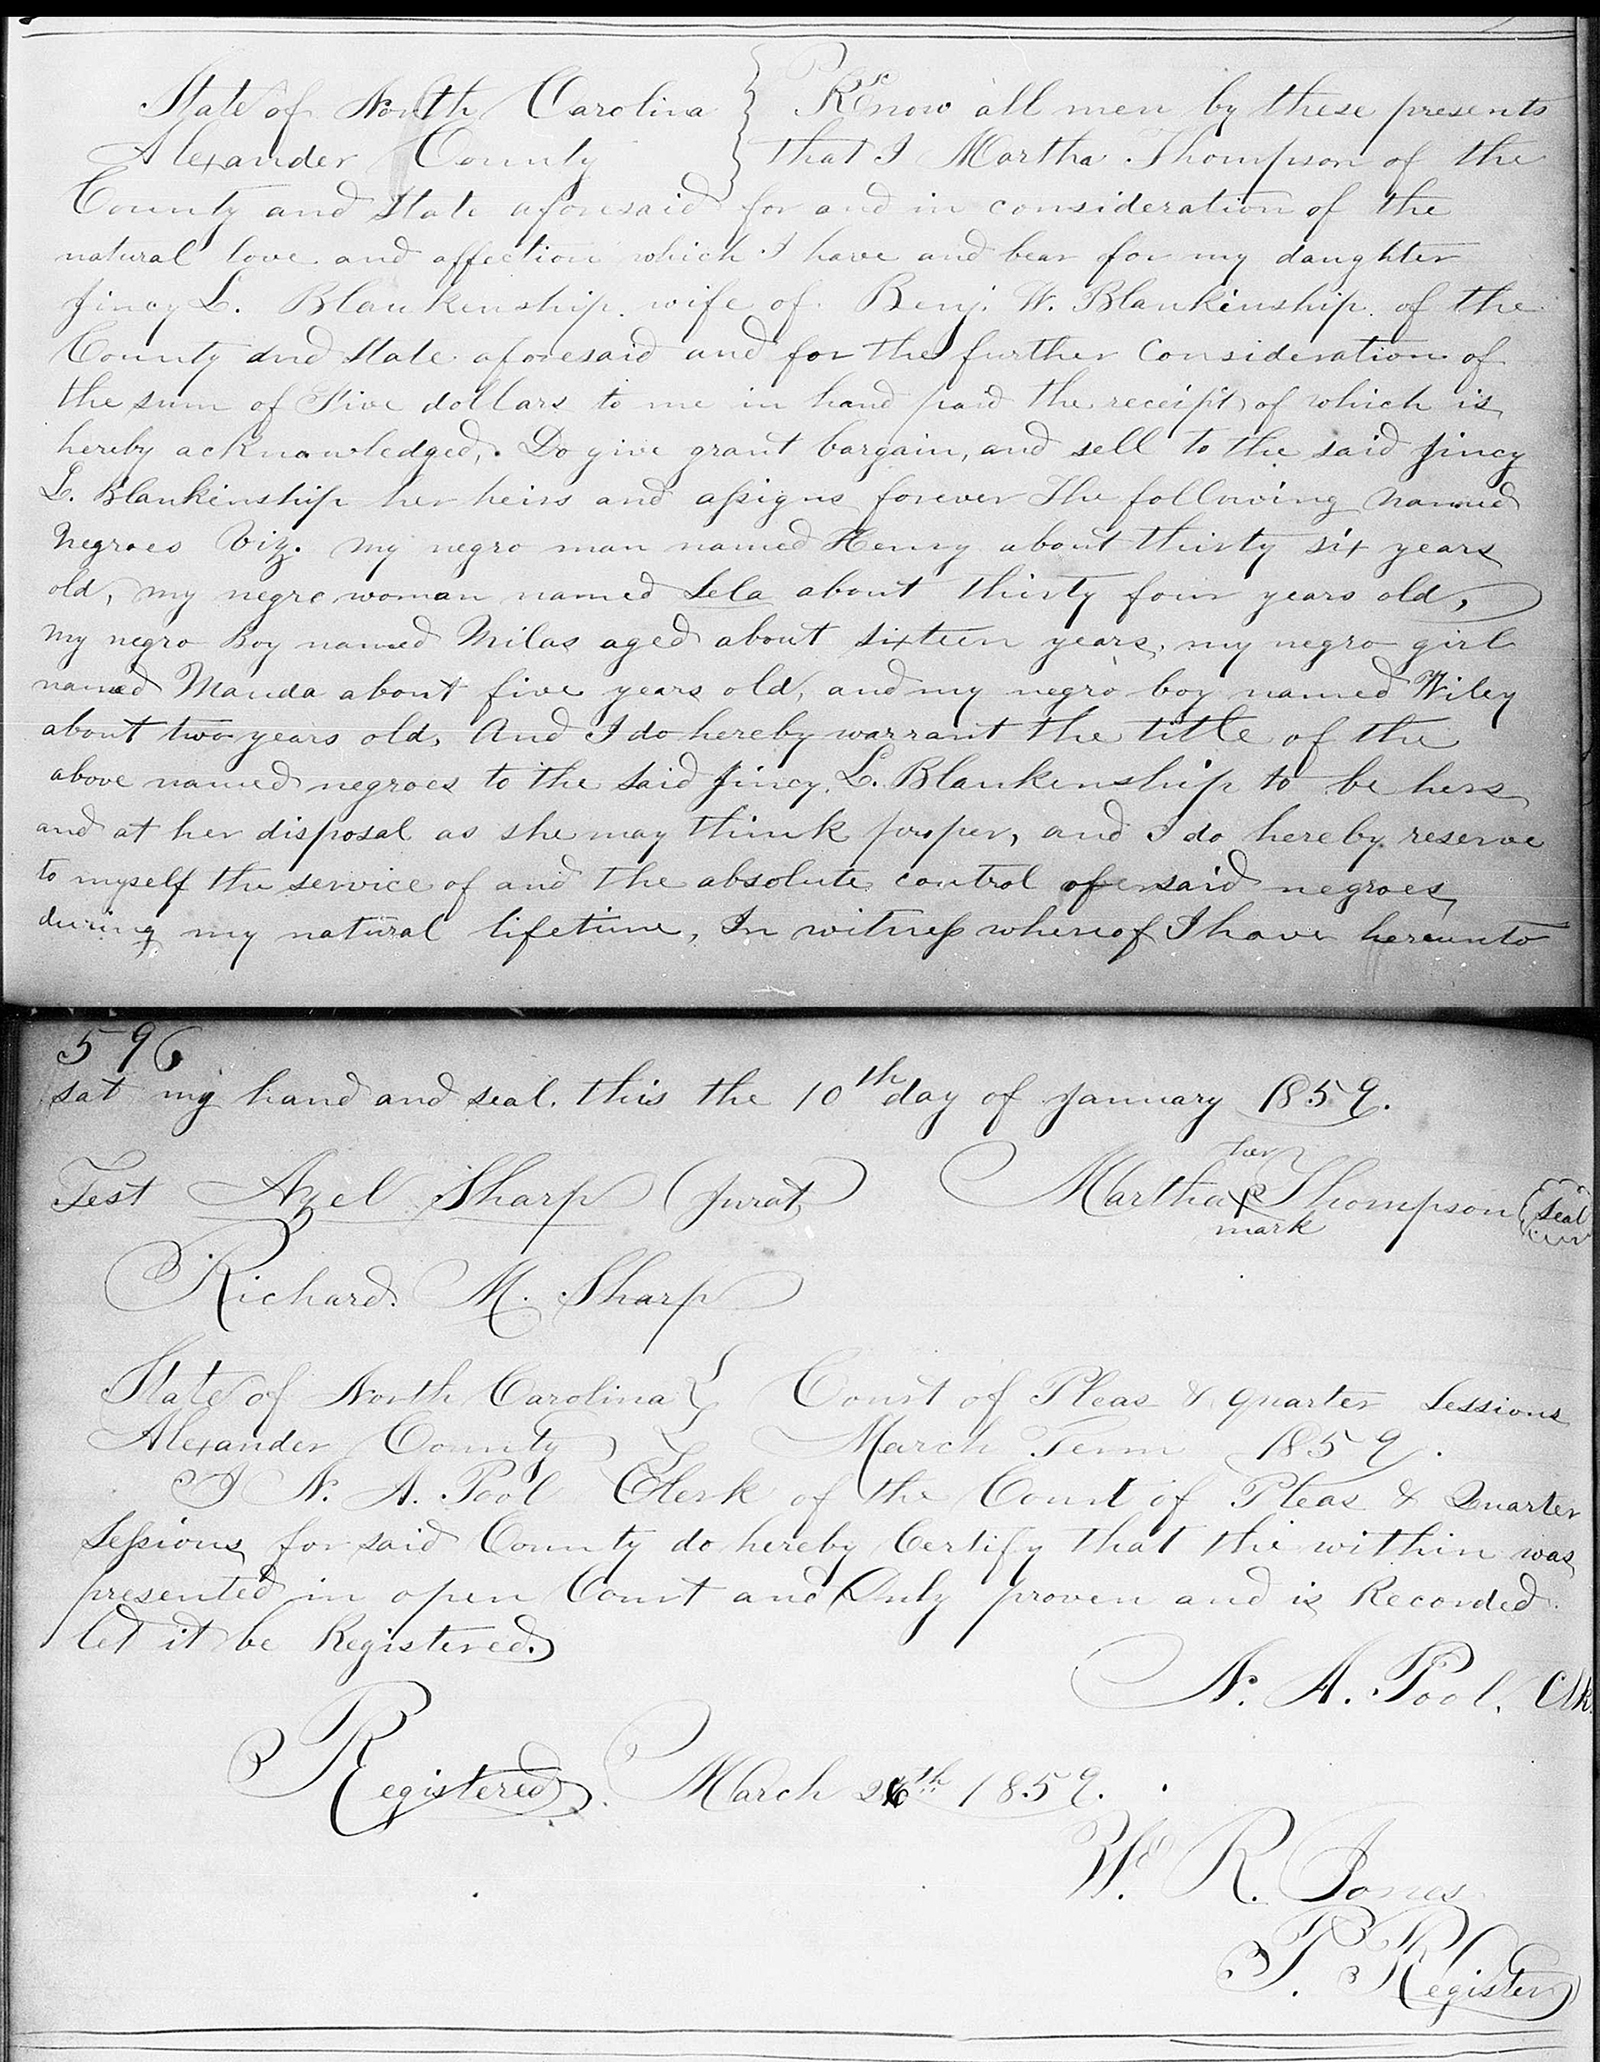 State of North Carolina } Know all men by these presents
Alexander County } that I Martha Thompson of the
County and State aforesaid for and in consideration of the
natural love and affection which I have and bear for my daughter
Jincy L. Blankenship wife of Benj. W. Blankinship of the
County and State aforesaid and for the further Consideration of
the sum of Five dollars to me in hand paid the receipt of which is
hereby acknowledged, Do give grant bargain, and sell to the said Jincy
L. Blankinship her heirs and assigns forever The following named
Negroes Viz. My negro man named Henry about thirty six years
old, my negro woman named Lela about thirty four years old,
My negro Boy named Milas aged about sixteen years, my negro girl
named Manda about five years old, and my negro boy named Wiley
about two years old, And I do hereby warrant the title of the
above named negroes to the said Jincy L. Blankenship to be hers
and at her disposal as she may think proper, and I do hereby reserve
to myself the service of and the absolute control of said negroes
during my natural lifetime, In witness whereof I have hereunto
596
sat my hand and seal. this the 10th day of January 1859.
her
Test Azel Sharp (Jurat) Martha X Thompson (Seal)
mark
Richard M. Sharp
State of North Carolina } Court of Pleas & quarter Sessions
Alexander County } March Term 1859.
I N. A. Pool Clerk of the Court of Pleas & Quarter
Sessions for said County do hereby Certify that the within was
presented in open Court and Duly proven and is Recorded.
let it be Registered.
N. A. Pool. Clk.
Registered. March 26th 1859.
W. R. Jones
P. Register